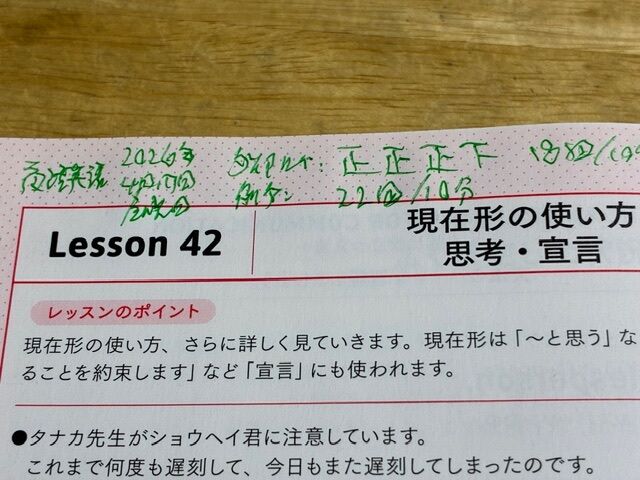 2026年
正 正 正 下 18回/10分
22回/10分
Lesson 42
現在形の使い方
思考・宣言
レッスンのポイント
現在形の使い方、さらに詳しく見ていきます。現在形は「〜と思う」な
ることを約束します」など「宣言」にも使われます。
●タナカ先生がショウヘイ君に注意しています。
これまで何度も遅刻して、今日もまた遅刻してしまったのです。